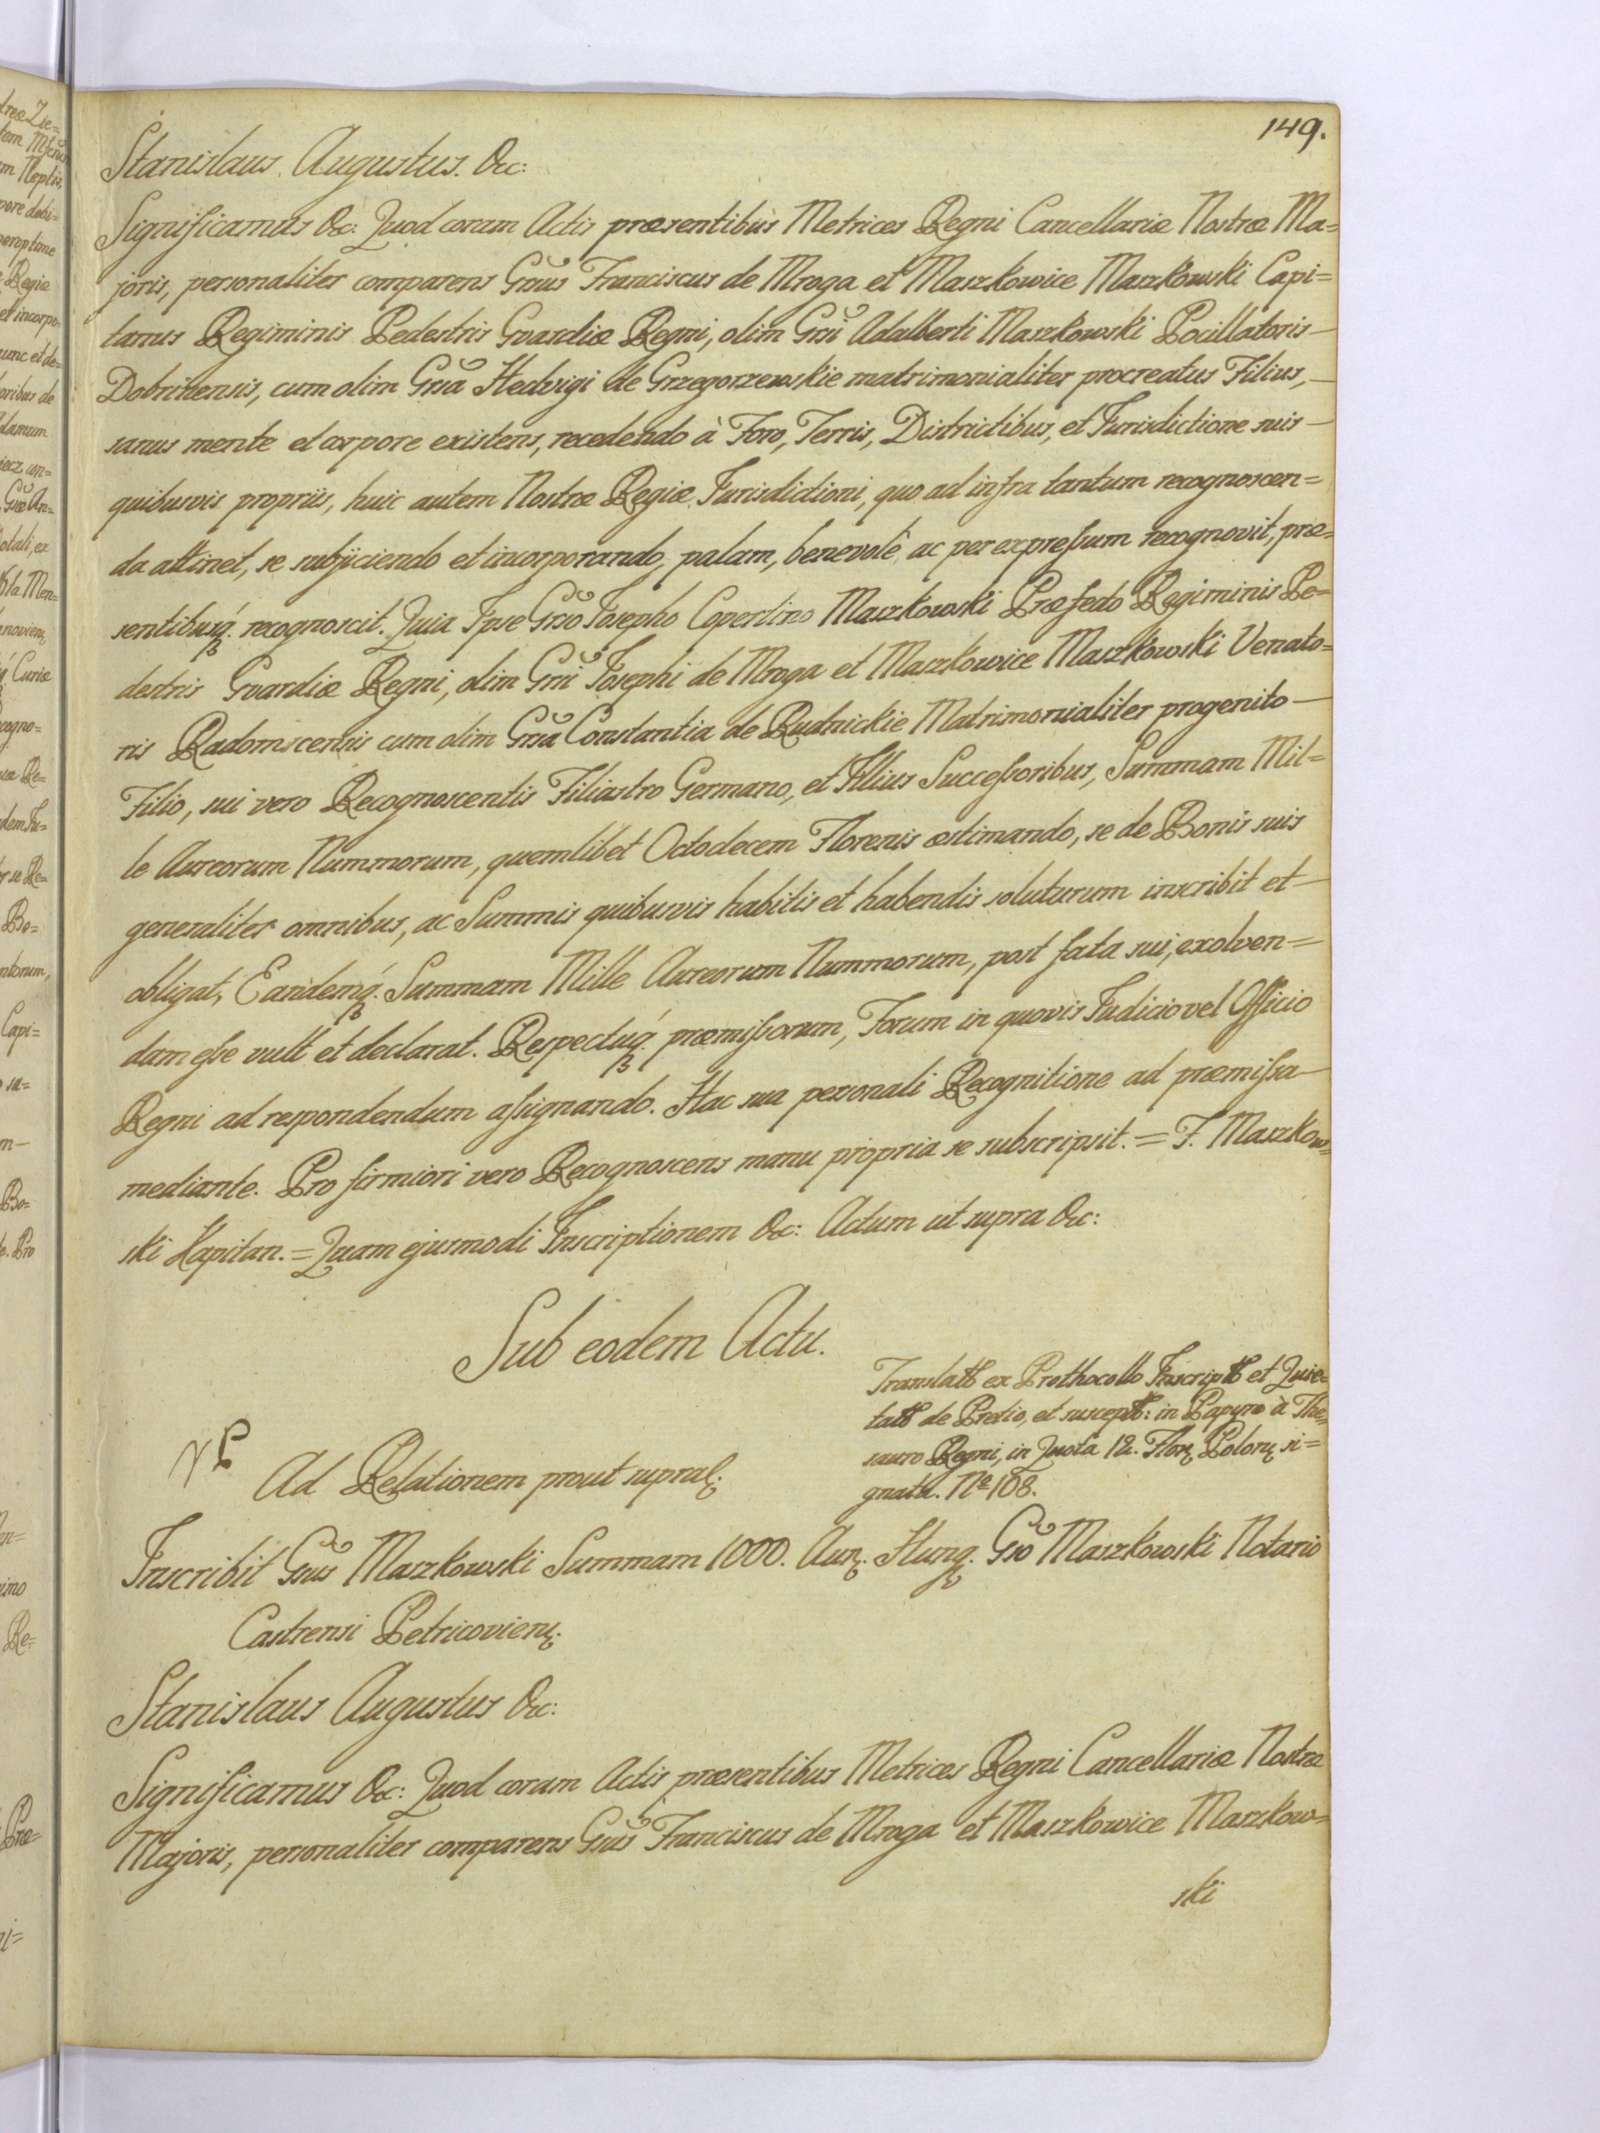 149.
Stanislaus Augustus. &c:
Significamus &c. Quod coram Actis præsentibus Metrices Regni Cancellariæ Nostræ Ma=
joris, personaliter comparens Gnŭs Franciscus de Mroga et Maszkowice Maszkowski Capi=
taneus Regiminis Pedestris Gvardiæ Regni, olim Gnsĭ Adalberti Maszkowski Pocillatoris
Dobrinensis, cum olim Gnsă Hedvigi de Grzegorzewskie matrimonialiter procreatus Filius,
sanus mente et corpore existens, recedendo à Foro, Terris, Districtibus, et Jurisdictione suis
quibusvis propriis, huic autem Nostræ Regiæ Jurisdictioni, quo ad infra tantum recognoscen=
da attinet, se subjiciendo et incorporando, palam, benevolè, ac per expressum recognovit, præ=
sentibusq́. recognoscit. Quia Ipse Gnsŏ Josepho Copertino Maszkowski Præfecto Regiminis Pe=
destris Gvardiæ Regni, olim Gnsĭ Josephi de Mroga et Maszkowice Maszkowski Venato=
ris Radomscensis cum olim Gnsă Constantia de Rudnickie Matrimonialiter progenito
Filio, sui vero Recognoscentis Filiastro Germano, et Illius Successoribus, Summam Mil=
le Aureorum Nummorum, quemlibet Octodecem Florenis æstimando, se de Bonis suis
generaliter omnibus, ac Summis quibusvis habitis et habendis soluturum inscribit et
obligat, Eandemq́. Summam Mille Aureorum Nummorum, post fata sui, exolven=
dam esse vult et declarat. Respectuq́. præmissorum, Forum in quovis Judicio vel Officio
Regni ad respondendum assignando. Hac sua personali Recognitione ad præmissa
mediante. Pro firmiori vero Recognoscens manu propria se subscripsit. = F. Maszkow=
ski Kapitan. = Quam ejusmodi Inscriptionem &c: Actum ut supra &c:
Sub eodem Actu.
Translatt ex Prothocollo Inscriptt et Quie=
tatt de Predio, et susceptt: in Papyro à The=
sauro Regni, in Quota 12. Flor: Polon: si=
gnata. No 108.
Ad Relationem prout supra.
Inscribit Gnŭs Maszkowski Summam 1000. Aur. Hung. Gnsŏ Maszkowski Notario
Castrensi Petricovien.
Stanislaus Augustus &c:
Significamus &c: Quod coram Actis præsentibus Metrices Regni Cancellariæ Nostræ
Majoris, personaliter comparens Gnŭs Franciscus de Mroga et Maszkowice Maszkow=
ski